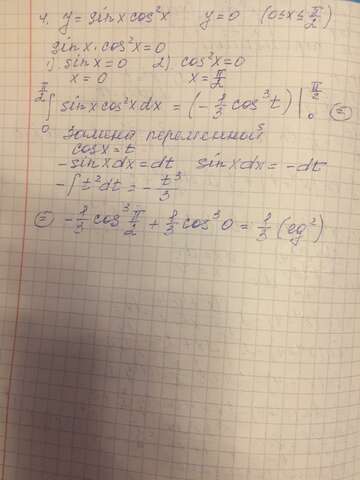 4. y = sinx cos²x    y = 0    (0≤x≤π/2)
sinx·cos²x=0
1) sinx=0    2) cos²x=0
x=0    x=π/2
∫₀^(π/2) sinx cos²x dx = (-1/3 cos³t)|₀^(π/2) ⊜
Замена переменной
cosx=t
-sinxdx=dt    sinxdx=-dt
-∫t²dt=-t³/3
⊜ -1/3 cos³ π/2 + 1/3 cos³ 0 = 1/3 (ед²)